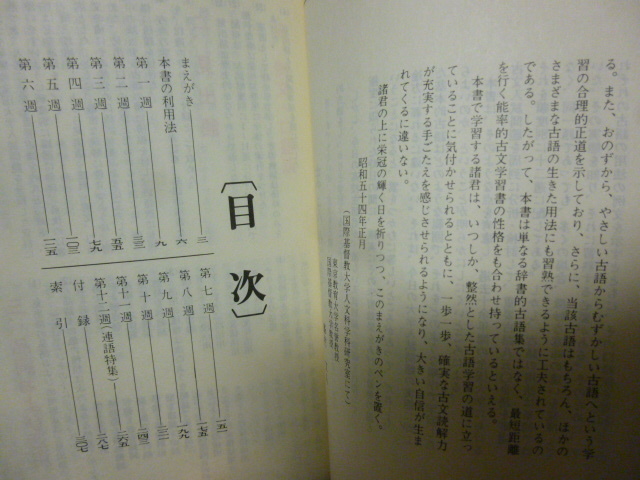 る。また、おのずから、やさしい古語からむずかしい古語へという学
習の合理的正道を示しており、さらに、当該古語はもちろん、ほかの
さまざまな古語の生きた用法にも習熟できるように工夫されているの
である。したがって、本書は単なる辞書的古語集ではなく、最短距離
を行く能率的古文学習書の性格をも合わせ持っているといえる。
本書で学習する諸君は、いつしか、整然とした古語学習の道に立っ
ていることに気付かせられるとともに、一歩一歩、確実な古文読解力
が充実する手ごたえを感じさせられるようになり、大きい自信が生ま
れてくるに違いない。
諸君の上に栄冠の輝く日を祈りつつ、このまえがきのペンを擱く。
昭和五十四年正月
(国際基督教大学人文科学科研究室にて)
東京教育大学名誉教授
国際基督教大学教授
〔目次〕
まえがき 三
本書の利用法 六
第一週 九
第二週 三三
第三週 五五
第四週 七九
第五週 一〇三
第六週 一二五
第七週 一五一
第八週 一七五
第九週 一九九
第十週 二二一
第十一週 二四三
第十二週(連語特集) 二六五
付録 二八七
索引 三〇七